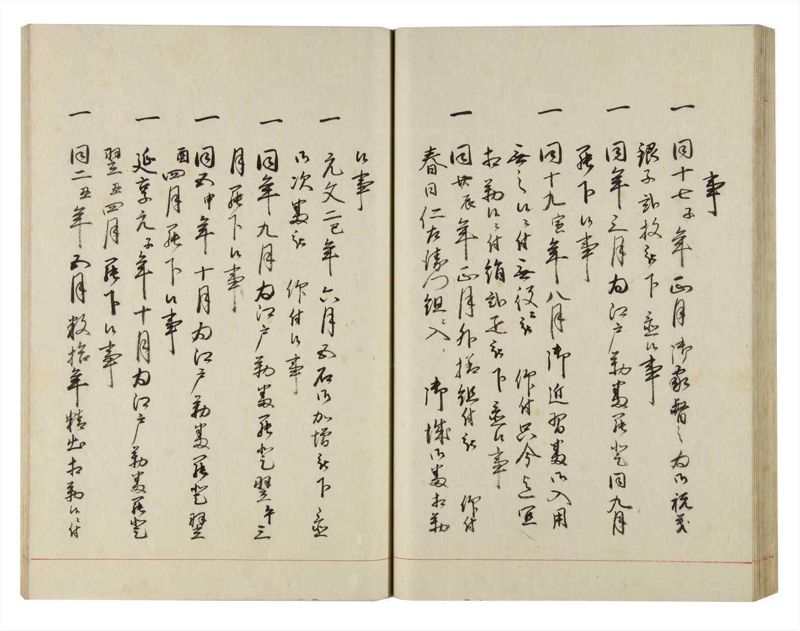 事
一 同十七子年正月御家督之為御祝義
銀子弐枚被下置候事
一 同年三月為江戸勤番罷登同九月
罷下候事
一 同十九寅年八月御近習番御入用
無之候ニ付無役ニ被 仰付只今迄宜
相勤候ニ付絹弐疋被下置候事
一 同廿辰年正月外様組付被 仰付
春日仁左衛門組ニ入 御城御番相勤
候事
一 元文二巳年六月五石御加増被下置
御次番被 仰付候事
一 同年九月為江戸勤番罷登翌午三
月罷下候事
一 同五申年十月為江戸勤番罷登翌
酉四月罷下候事
一 延享元子年十月為江戸勤番罷登
翌丑四月罷下候事
一 同二丑年五月数拾年精出相勤候ニ付